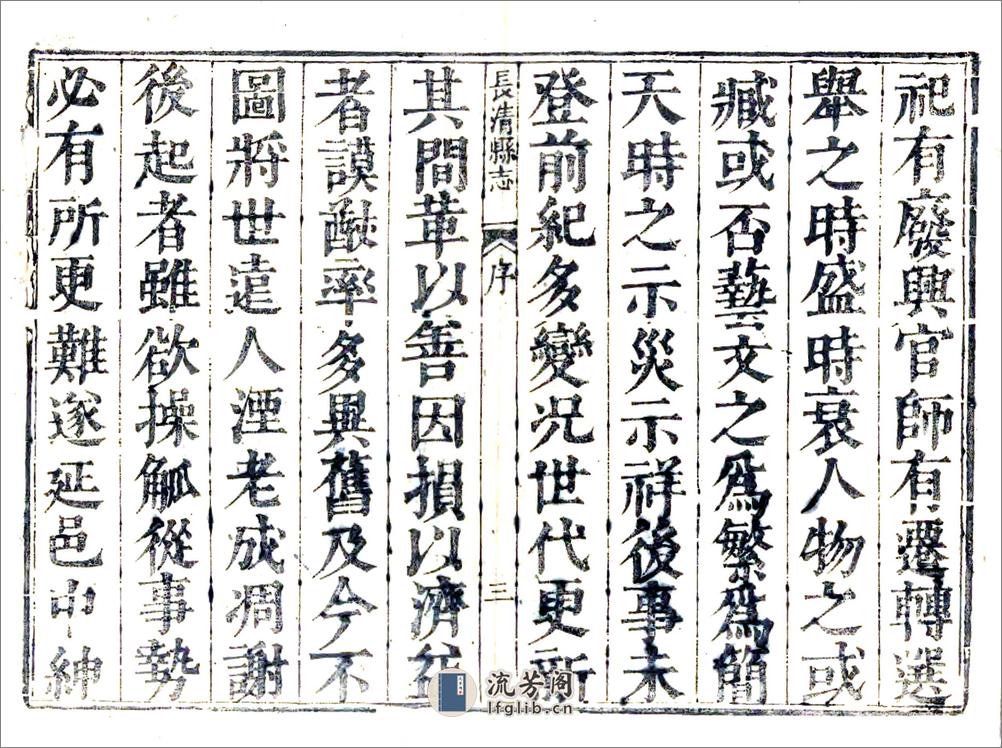 祀有廢興官師有遷轉選
舉之時盛時衰人物之或
臧或否藝文之爲繁爲簡
天時之示災示祥後事未
登前紀多變况世代更新
長清縣志 序 三
其間革以善因損以濟益
者謨猷率多異舊及今不
圖將世遠人湮老成凋謝
後起者雖欲操觚從事勢
必有所更難遂延邑中紳
流芳阁
lfglib.cn